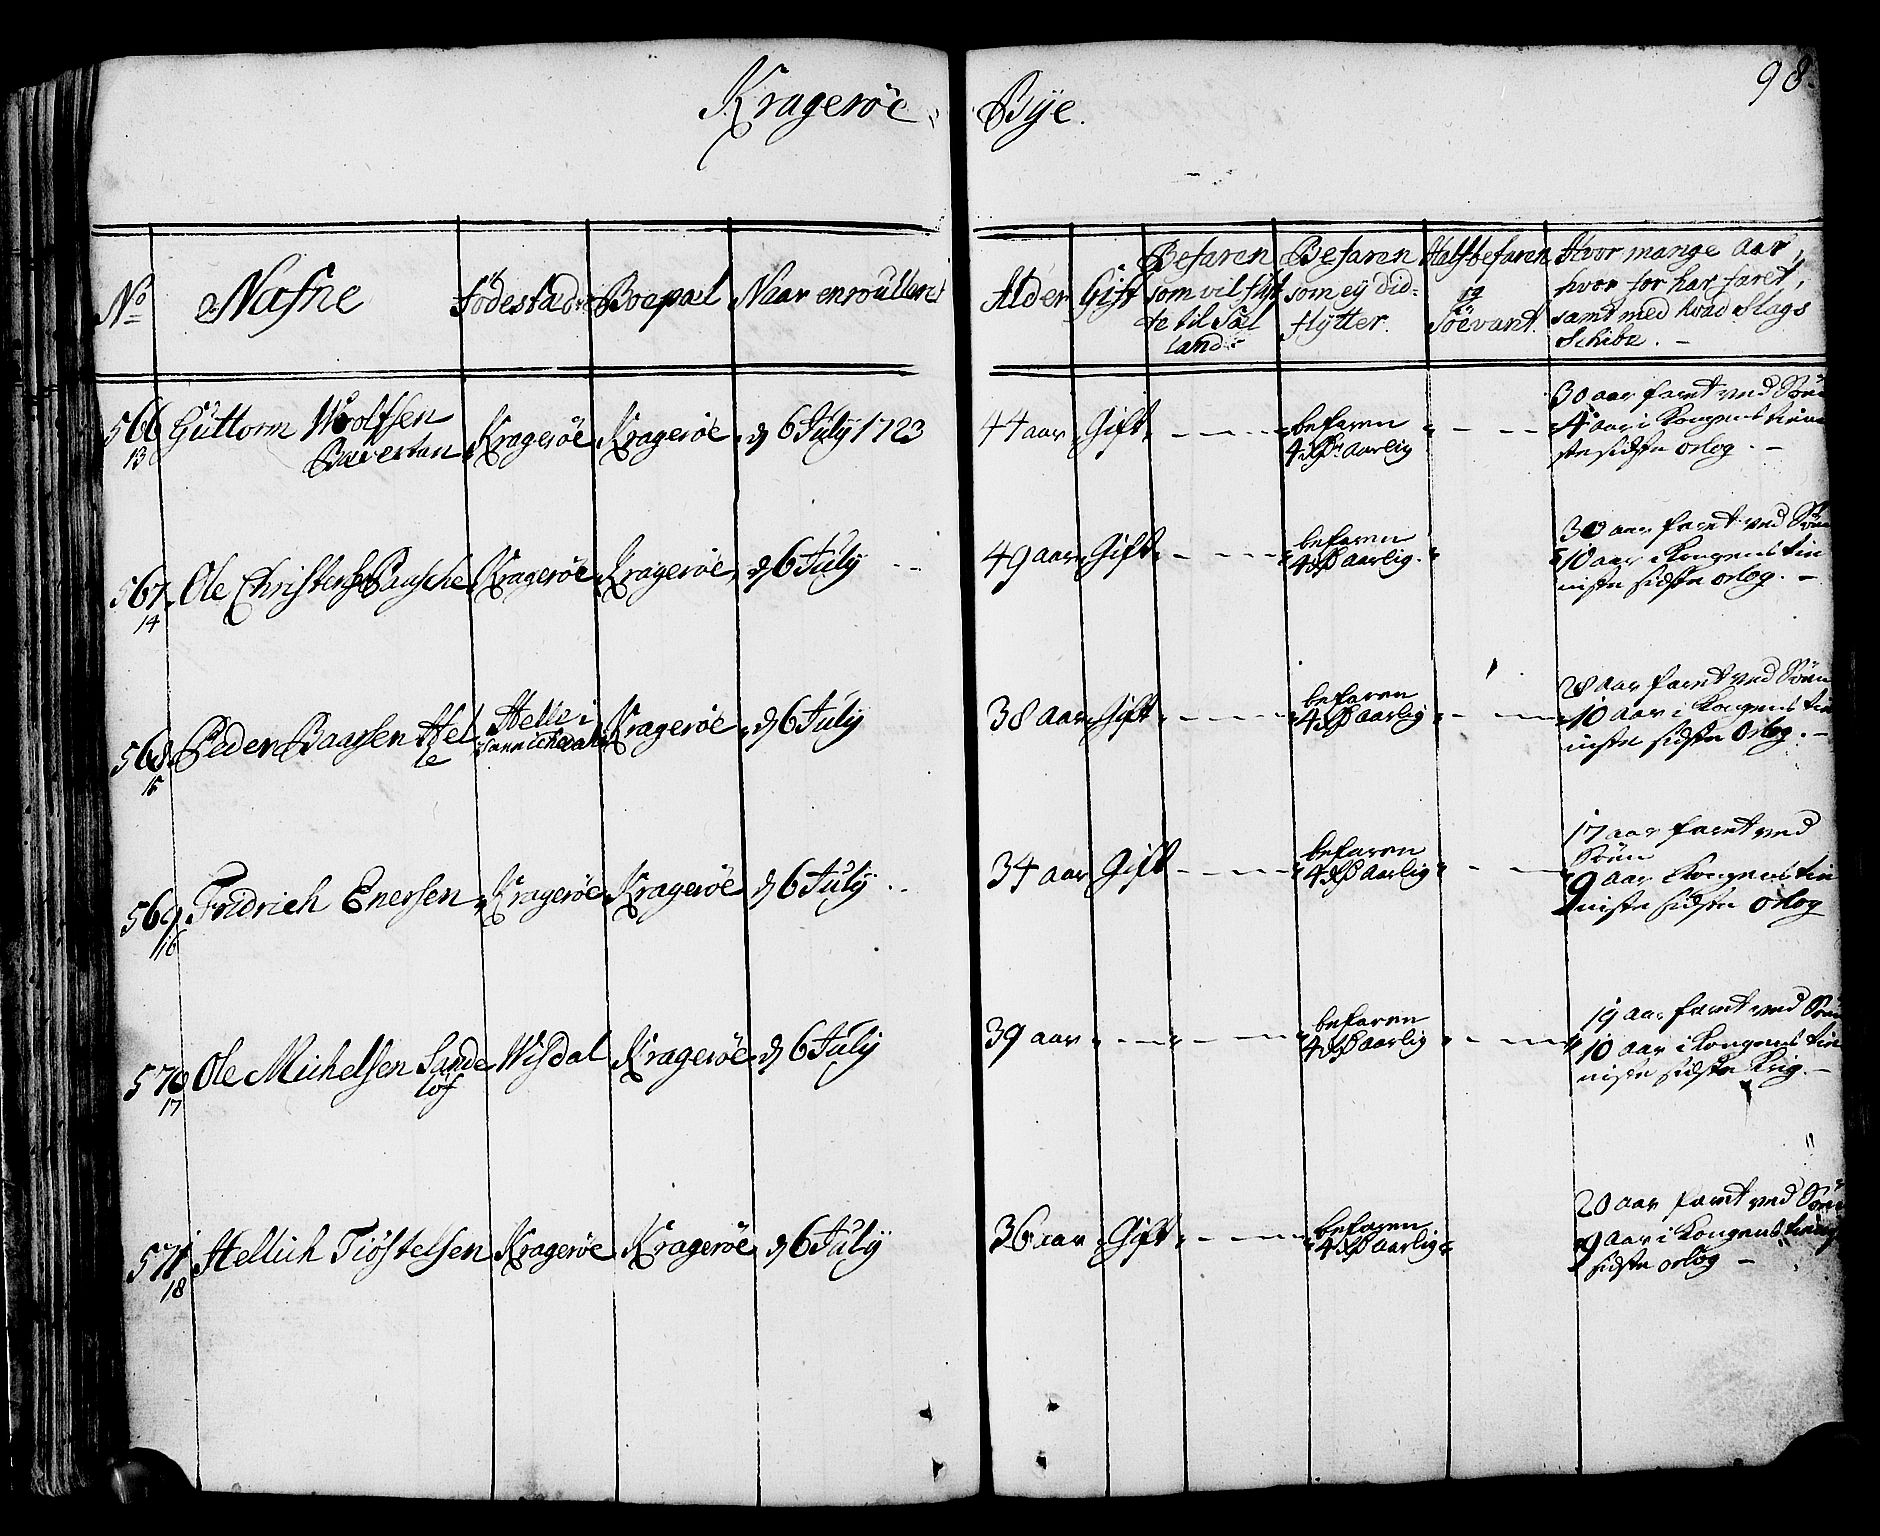 Kragerøe Bÿe.
98.
No Nafne Fødestad Boepæl Naar enroulleret Alder Gift
Befaren som vil flÿtte til Sælland
Befaren som eÿ did flÿtter.
Halfbefaren og Søevant.
Hvor mange aar, hvor for har faret, samt med hvad Slags Schibe. –
566 Guttorm Wolfsen Kragerøe Kragerøe d 6 Julÿ 1723 44 aar Gift befaren
13 4 aarlig
30 aar faret ved Søen
4 aar i Kongens tieniste sidste orlog. –
567 Ole Christensen Kragerøe Kragerøe d 6 Julÿ 49 aar Gift befaren
14 4 aarlig.
30 aar faret ved Søen
10 aar i Kongens tieniste sidste orlog. –
568 Peder Baarsen Helle Helle i Kragerøe d 6 Julÿ 38 aar Gift befaren
15 4 aarlig
28 aar faret ved Søen
10 aar i Kongens tieniste sidste orlog. –
569 Fridrich Enersen Kragerøe Kragerøe d 6 Julÿ 34 aar Gift befaren
16 4 aarlig
17 aar faret ved Søen
9 aar Kongens tieniste sidste orlog
570 Ole Michelsen Sandeløf Wisdal Kragerøe d 6 Julÿ 39 aar befaren
17 4 aarlig
19 aar faret ved Søen
10 aar i Kongens tieniste sidste Krig. –
571 Hellich Tiøstelsen Kragerøe Kragerøe d 6 Julÿ 36 aar Gift befaren
18 4 aarlig
20 aar faret ved Søen
9 aar i Kongens
sidste orlog –